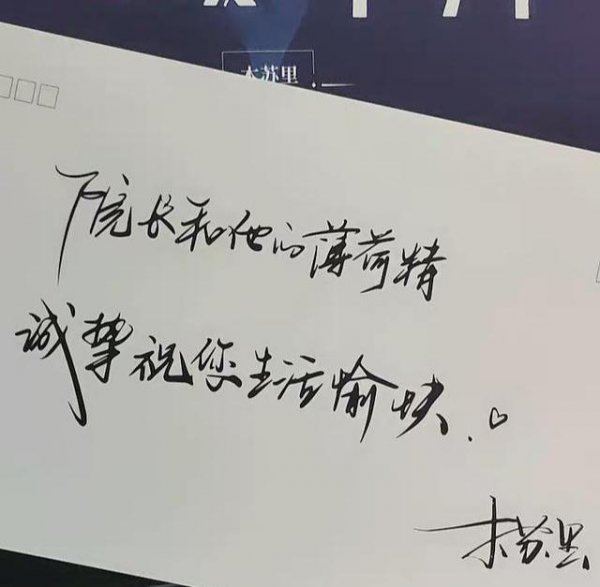 木苏里
下院长和他的薄荷精
诚挚祝您生活愉快.♡
木苏里